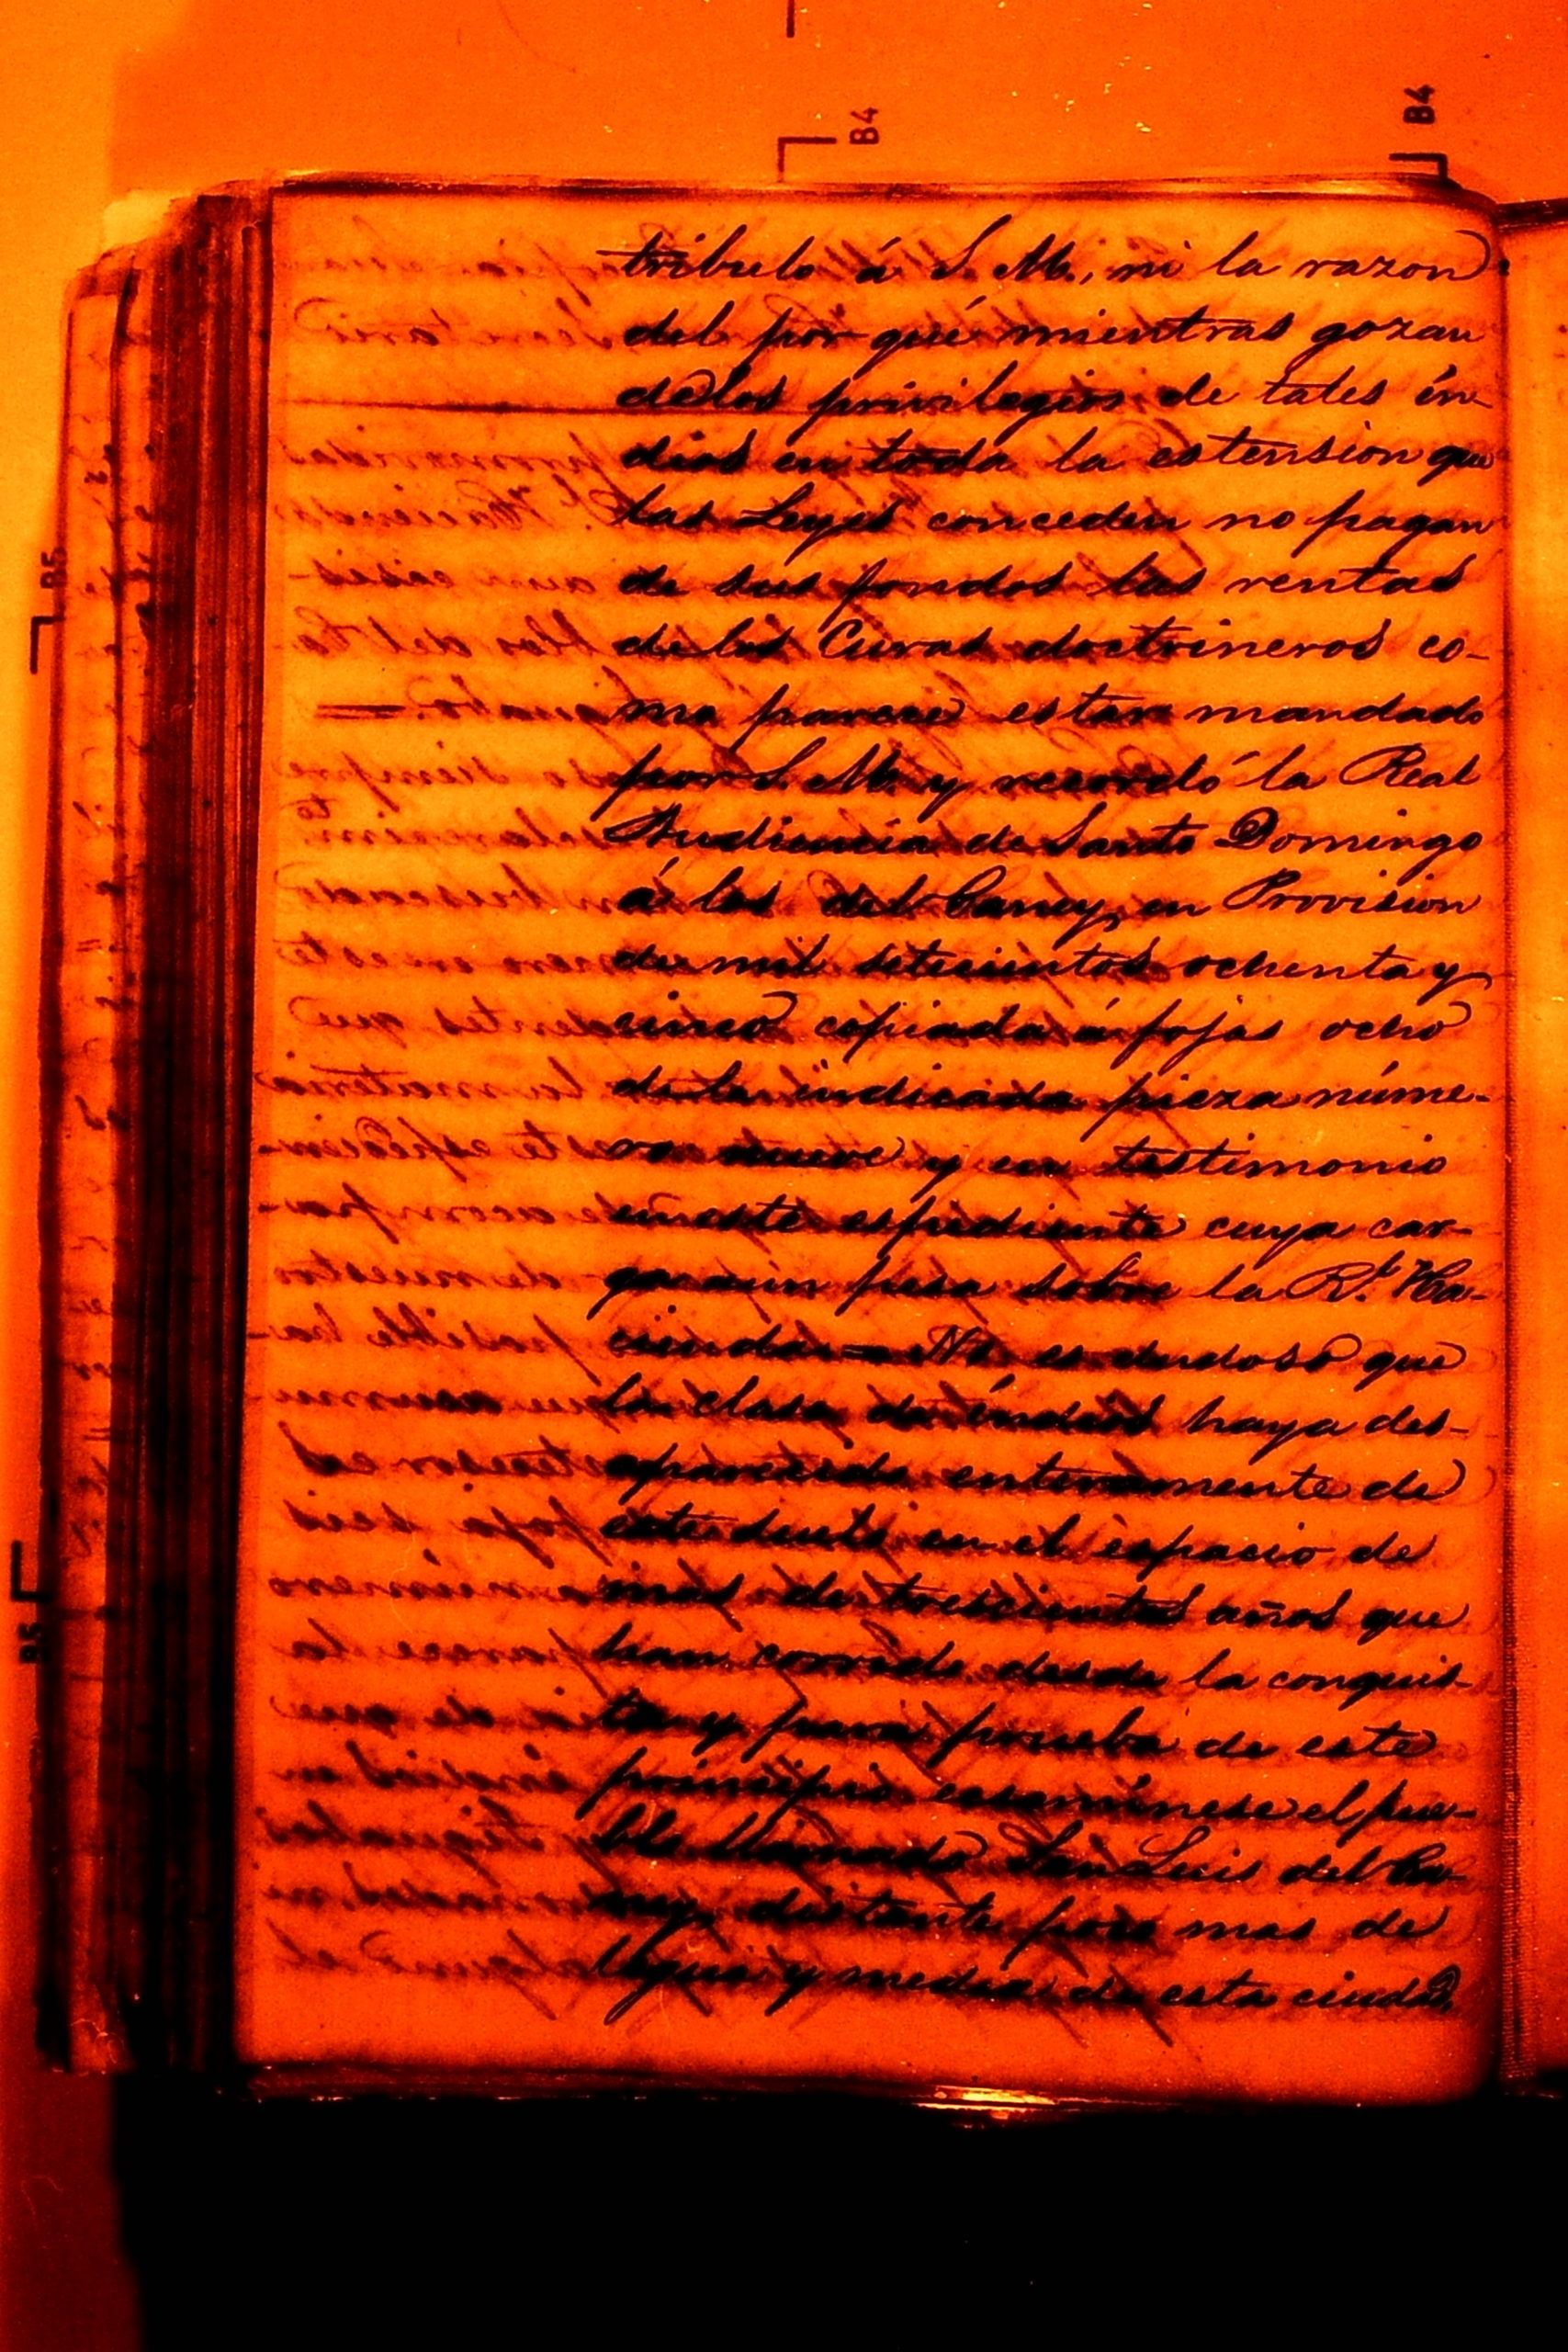 B4
B4
tributo á S. M., ni la razon
del por qué mientras gozan
de los privilegios de tales ín-
dios en toda la estension que
las Leyes conceden no pagan
de sus fondos las rentas
de los Curas doctrineros co-
mo parece estar mandado
por S. M. y recordó la Real
Audiencia de Santo Domingo
á los del Caney, en Provision
de mil setecientos ochenta y
cinco copiada á fojas ocho
de la indicada pieza núme-
ro nueve y en testimonio
en este espediente cuya car-
ga aún pesa sobre la Rl. Ha-
cienda = No es dudoso que
la clase de índios haya des-
aparecido enteramente de
este suelo en el espacio de
mas de trescientos años que
han corrido desde la conquis-
ta y para prueba de este
principio ecsamínese el pue-
blo llamado San Luis del Ca-
ney, distante poco mas de
legua y media de esta ciudad,
B5
B5